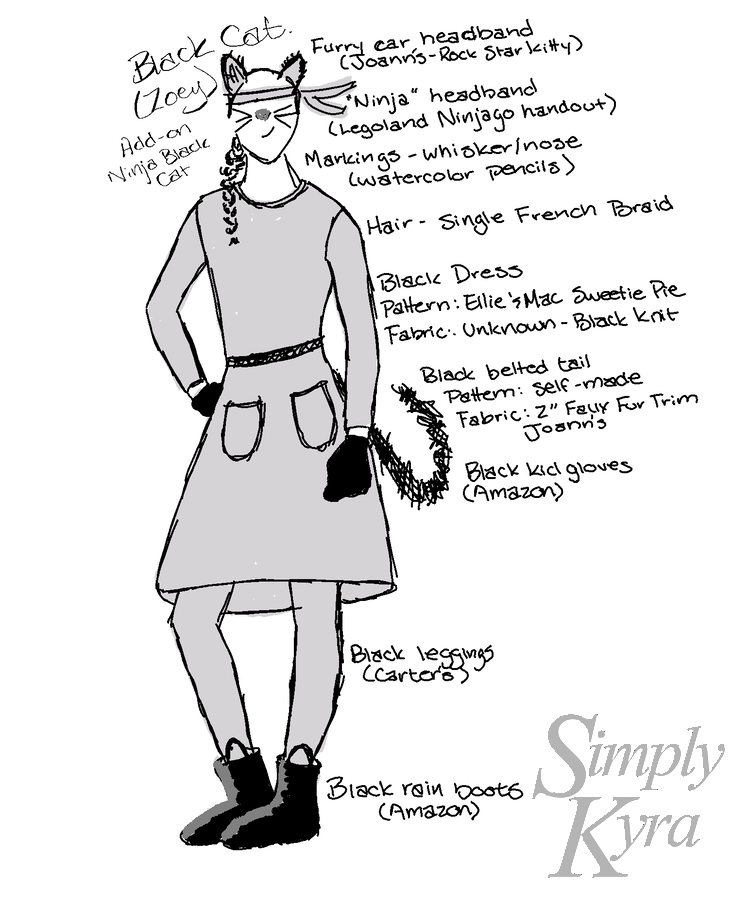 Black Cat.
(Zoey)
Add-on
Ninja Black
Cat
Furry ear headband
(Joann's-Rock Star Kitty)
"Ninja" headband
(Legoland Ninjago handout)
Markings - whisker/nose
(watercolor pencils)
Hair - Single French Braid
Black Dress
Pattern: Ellie's Mac Sweetie Pie
Fabric: Unknown - Black Knit
Black belted tail
Pattern: Self-made
Fabric: 2" Faux Fur Trim
Joann's
Black kid gloves
(Amazon)
Black leggings
(Carter's)
Black rain boots
(Amazon)
Simply
Kyra